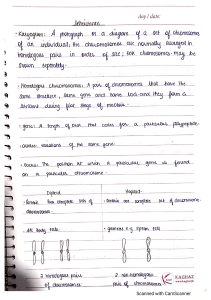 day / date:
Inheritance
- Karyogram: A photograph or a diagram of a set of chromosomes
of an individual, the chromosomes are normally arranged in
homologous pairs in order of size; sex chromosomes may be
shown separately.
- Homologous chromosomes: A pair of chromosomes that have the
same structure, same gene and same loci and they form a
bivalent during first stage of meiosis.
- gene: A length of DNA that codes for a particular polypeptide.
- alleles: variations of the same gene.
- locus: The position at which a particular gene is found
on a particular chromosome.
Diploid
Haploid
two complete sets of
chromosomes
one complete set of chromosomes
- All body cells
- gametes e.g. sperm cells
2 homologous pairs
of chromosomes
2 non homologous
pairs of chromosomes
KAGHAZ
Scanned with CamScanner